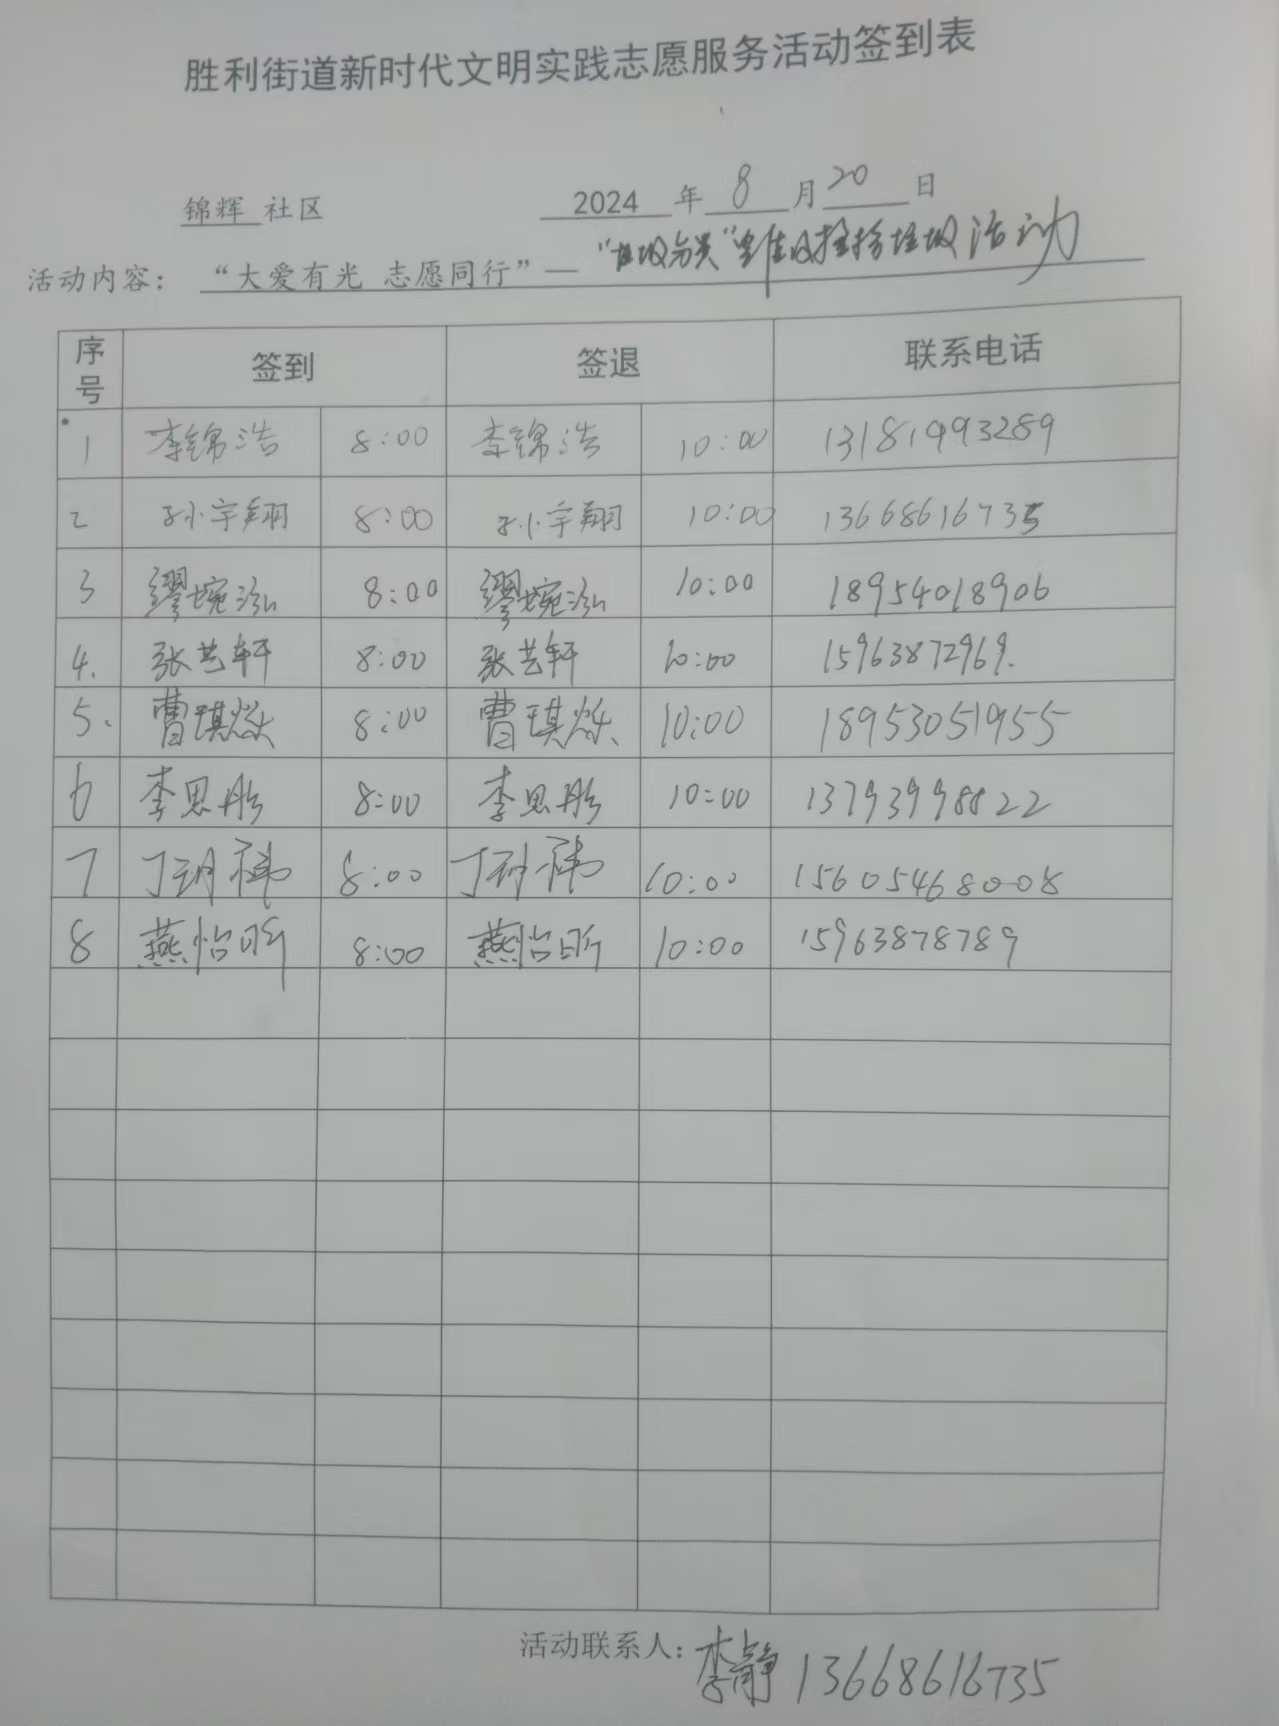 胜利街道新时代文明实践志愿服务活动签到表
锦辉 社区 2024 年 8 月 20 日
活动内容： “大爱有光 志愿同行”— “垃圾分类” 捡拾垃圾活动
序号 签到 签退 联系电话
1 李锦浩 8:00 李锦浩 10:00 13181993289
2 孙小宇翔 8:00 孙小宇翔 10:00 13668616735
3 缪婉泓 8:00 缪婉泓 10:00 18954018906
4. 张艺轩 8:00 张艺轩 10:00 15963872969.
5. 曹琪焱 8:00 曹琪焱 10:00 18953051955
6 李思彤 8:00 李思彤 10:00 13793998822
7 丁玥祎 8:00 丁玥祎 10:00 15605468008
8 燕怡昕 8:00 燕怡昕 10:00 15963878789
活动联系人：李静 13668616735